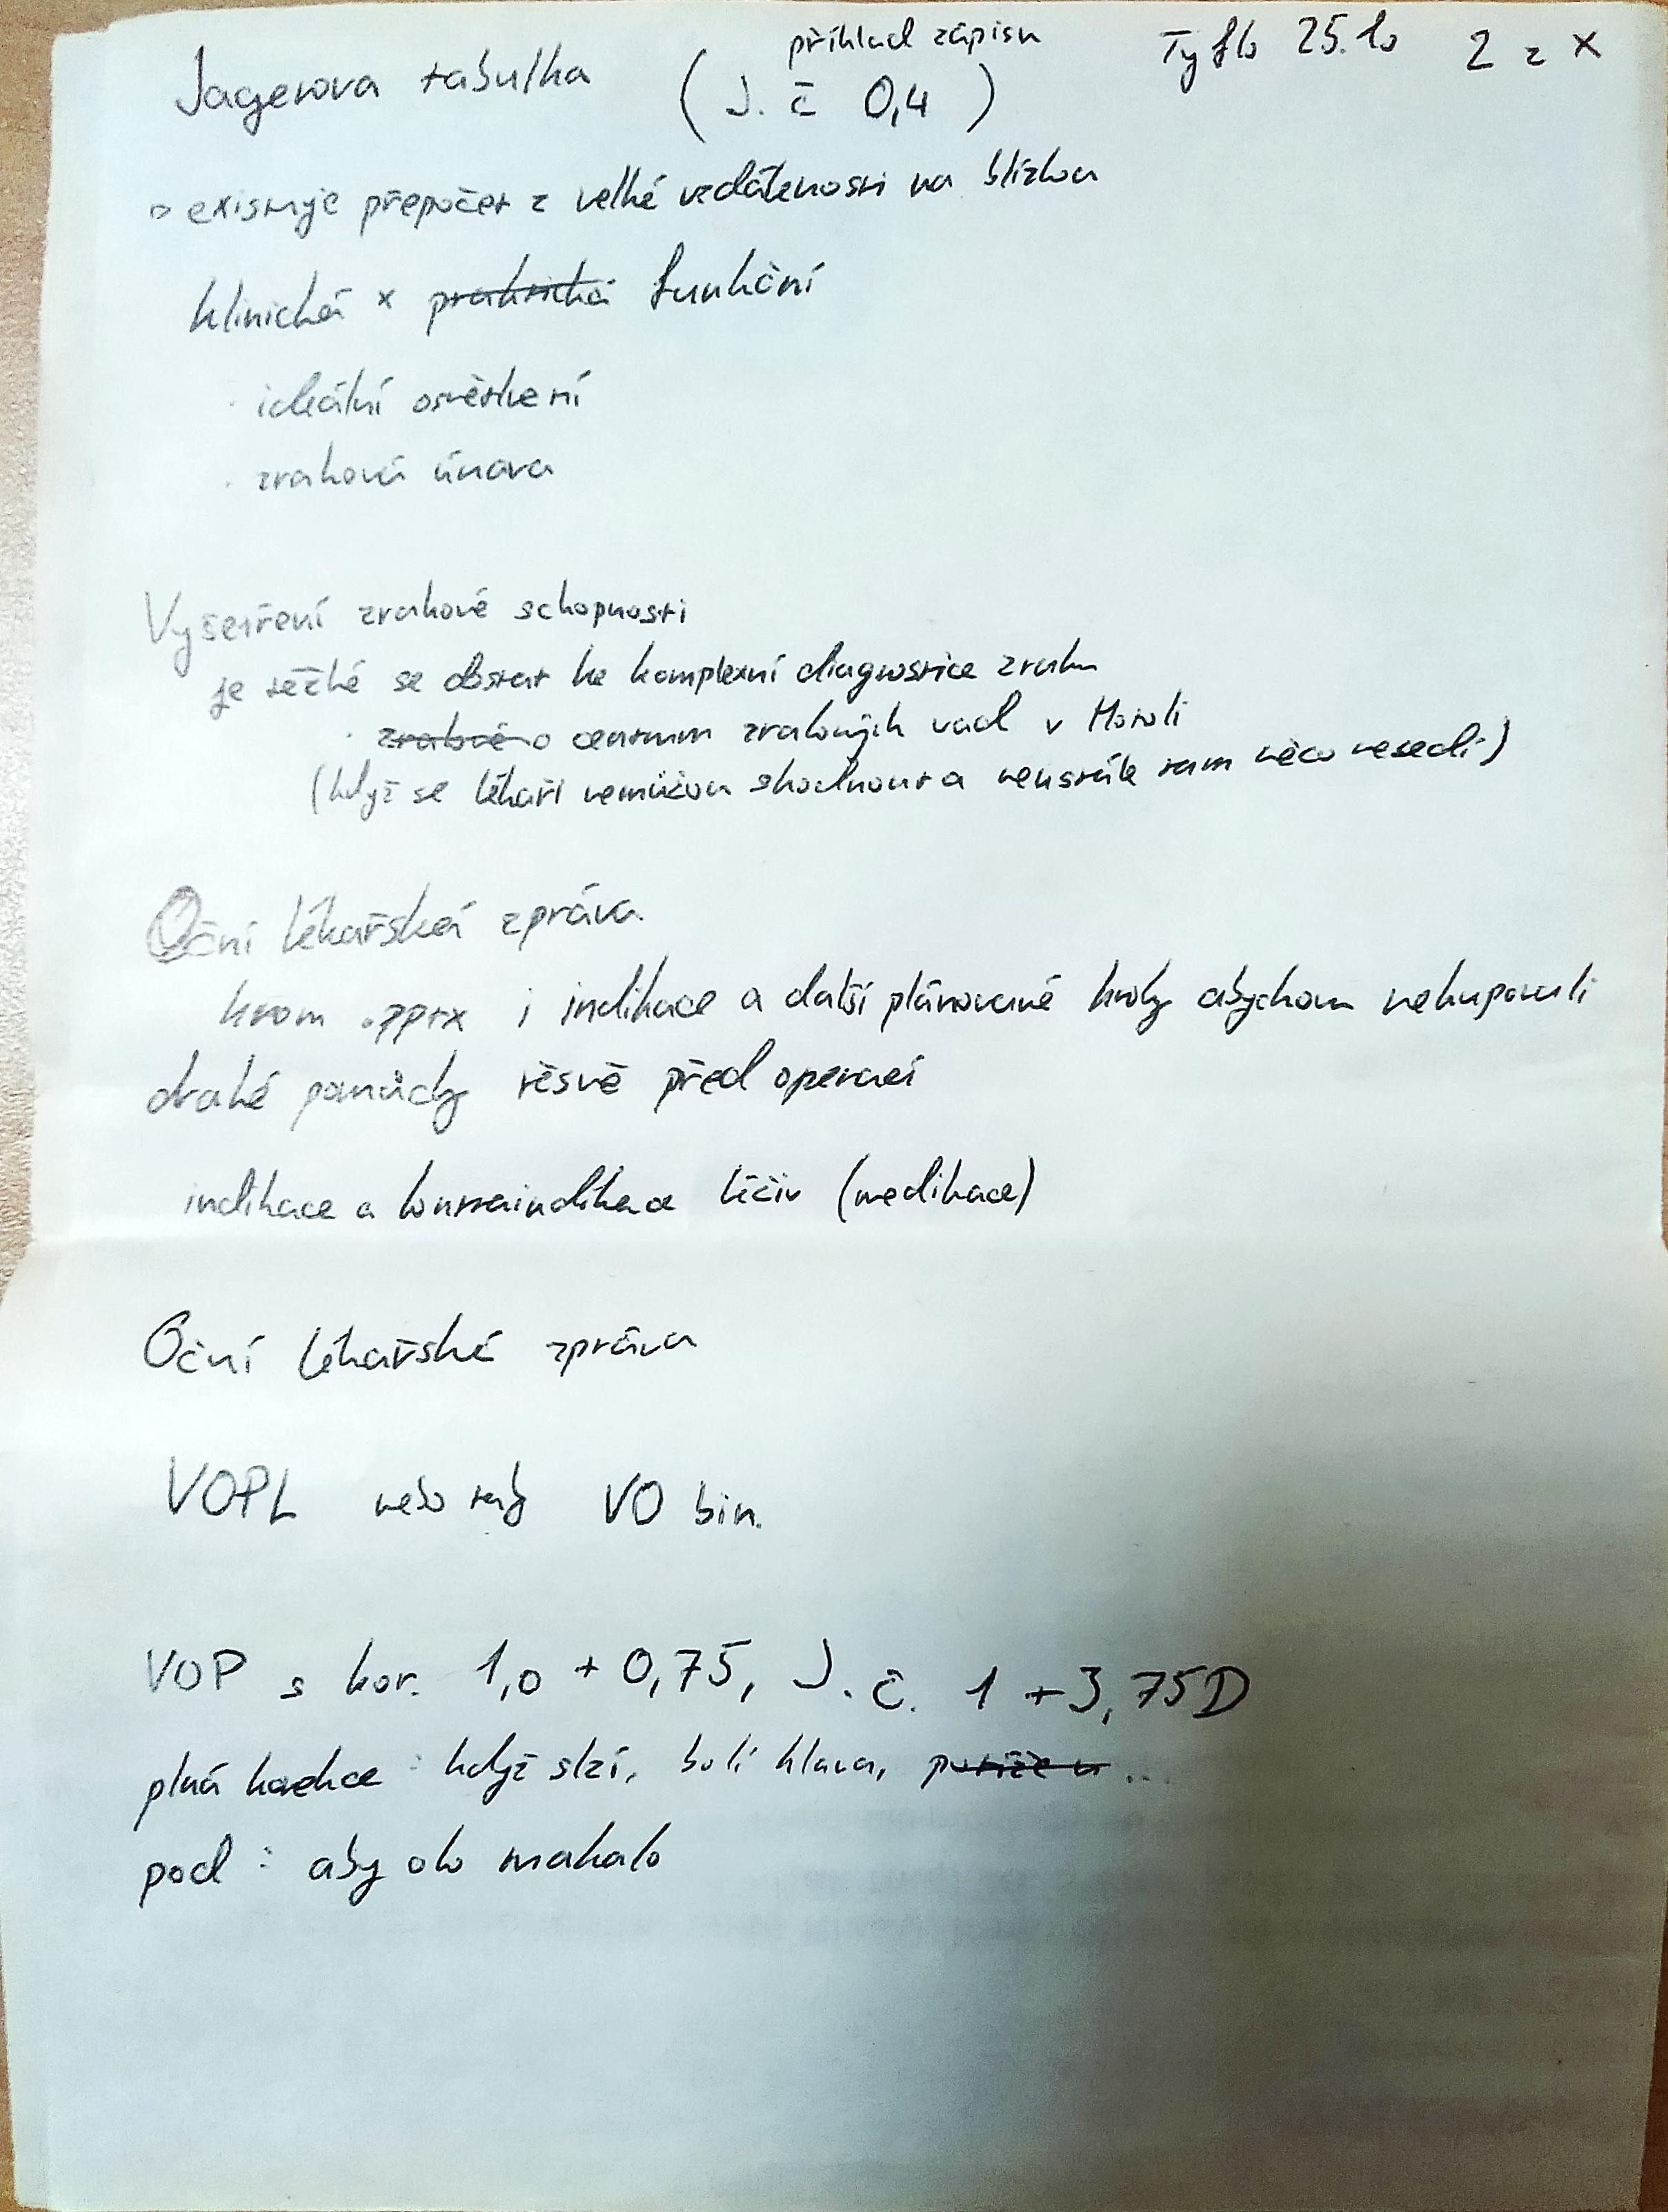 příklad zápisu Tyflo 25.10 2 z X
Jagerova tabulka ( J. č 0,4 )
existuje přepočet z velké vzdálenosti na blízkou
klinická x praktická funkční
· ideální osvětlení
· zraková únava
Vyšetření zrakové schopnosti
je těžké se dostat ke komplexní diagnostice zraku
· zrakové o centrum zrakových vad v Motoli
(když se lékaři nemůžou shodnout a neustále tam něco nesedí)
Oční lékařská zpráva
krom .pptx i indikace a další plánované kroky abychom nekupovali
drahé pomůcky těsně před operací
indikace a kontraindikace léčiv (medikace)
Oční lékařské zpráva
VOPL nebo tedy VO bin.
VOP s kor. 1,0 + 0,75, J. č. 1 + 3,75D
plná : když slzí, bolí hlava, ...
pod : aby oko makalo